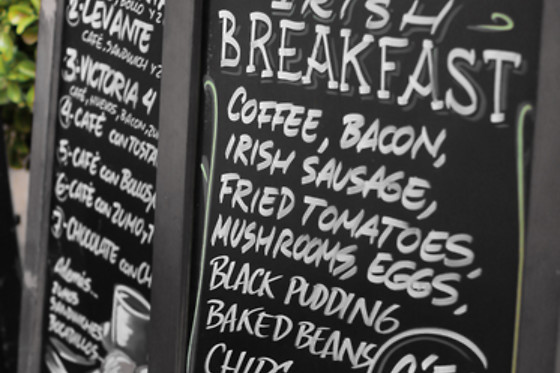 2-LEVANTE
CAFÉ, SANDWICH Y Z
3-VICTORIA 41
CAFÉ, HUEVOS, BACON, ZU
4-CAFÉ CON TOSTA
5-CAFÉ CON BOLLOS,
6-CAFÉ CON ZUMO, T
7-CHOCOLATE CON CH
ZUMOS
SANDWICHES
BOCADILLOS
IRISH
BREAKFAST
COFFEE, BACON,
IRISH SAUSAGE,
FRIED TOMATOES,
MUSHROOMS, EGGS,
BLACK PUDDING
BAKED BEANS
CHIPS